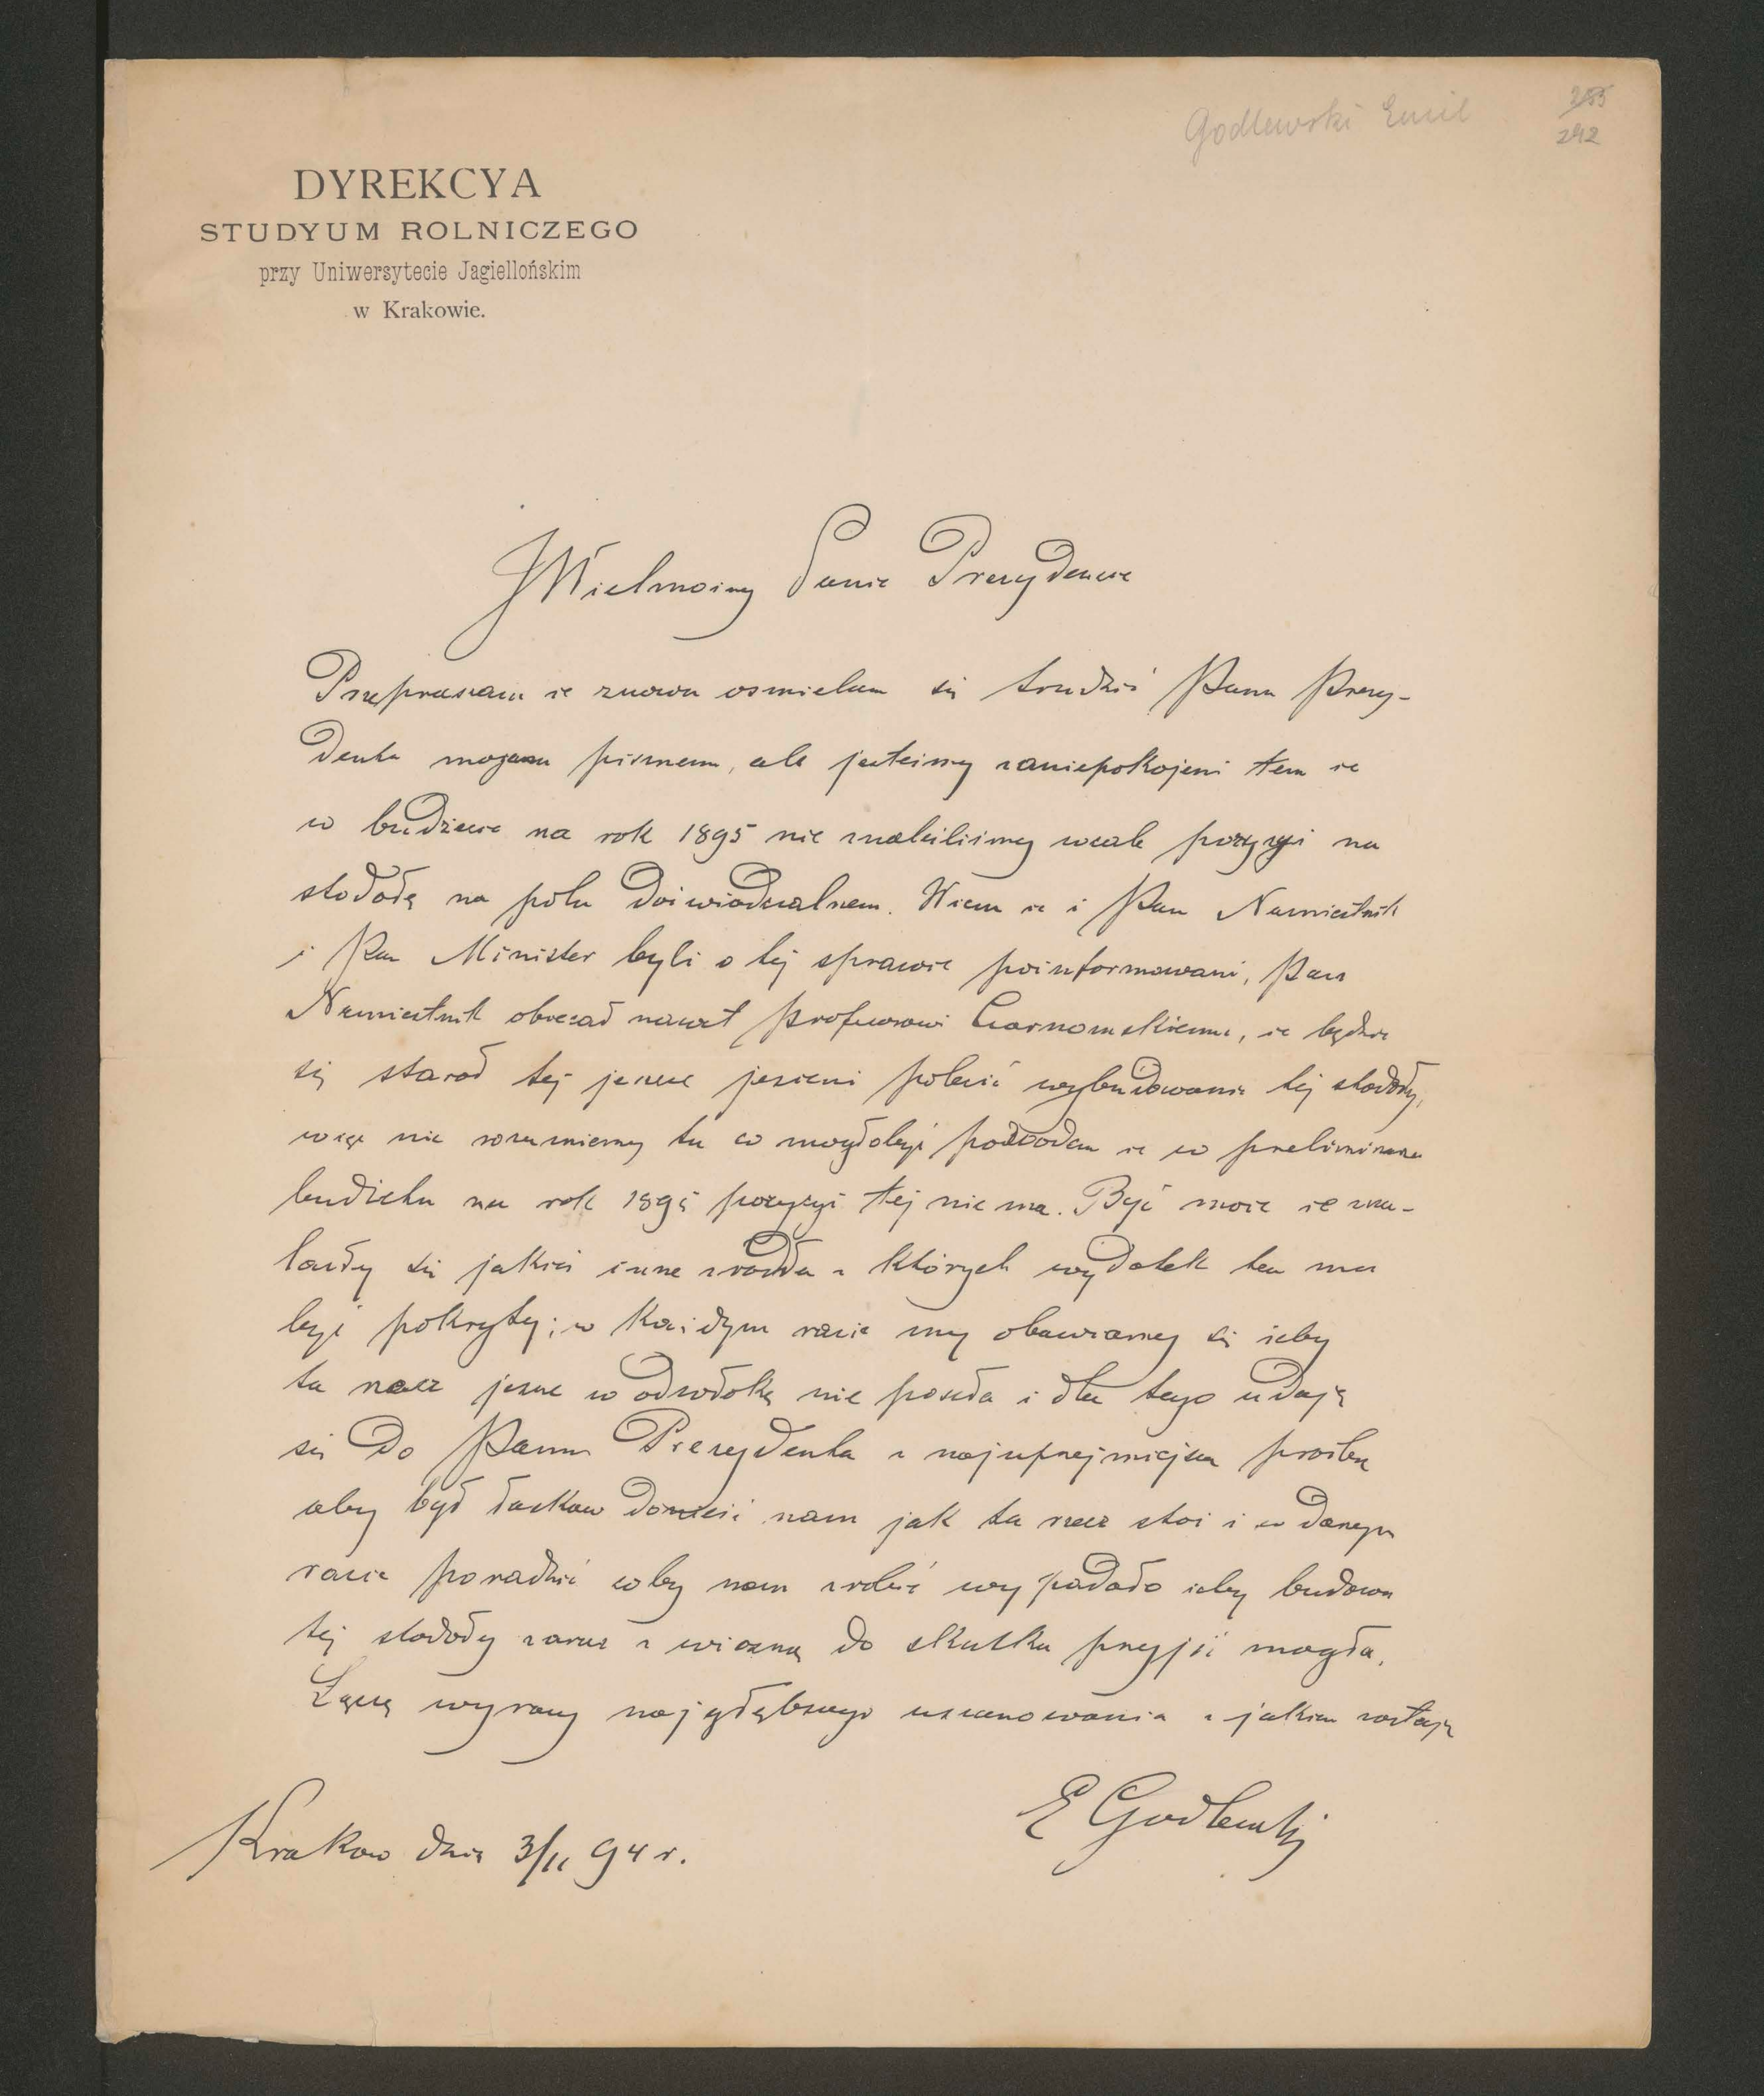 Godlewski Emil
255
242
DYREKCYA
STUDYUM ROLNICZEGO
przy Uniwersytecie Jagiellońskim
w Krakowie.
JWielmożny Panie Prezydencie
Przepraszam że znowu ośmielam się trudzić Pana Prezy-
denta mojem pismem, ale jesteśmy zaniepokojeni tem że
w budżecie na rok 1895 nie znaleźliśmy wcale pozycyi na
stodołę na polu doświadczalnem. Wiem że i Pan Namiestnik
i Pan Minister byli o tej sprawie poinformowani, Pan
Namiestnik obiecał nawet profesorowi Czarnomskiemu, że będzie
się starał tej jeszcze jesieni polecić wybudowanie tej stodoły,
więc nie rozumiemy tu co mogłobyć powodem że w preliminarzu
budżetu na rok 1895 pozycyi tej nie ma. Być może że zna-
lazły się jakieś inne źródła z których wydatek ten ma
być pokryty; w każdym razie my obawiamy się żeby
ta rzecz jeszcze w odwłokę nie poszła i dla tego udaję
się do Pana Prezydenta z najuprzejmiejszą prośbą
aby był łaskaw donieść nam jak ta rzecz stoi i w danym
razie poradzić coby nam zrobić wypadało żeby budowa
tej stodoły zaraz z wiosną do skutku przyjść mogła.
Łączę wyrazy najgłębszego uszanowania z jakiem zostaję
E Godlewski
Krakow dnia 3/11 94 r.